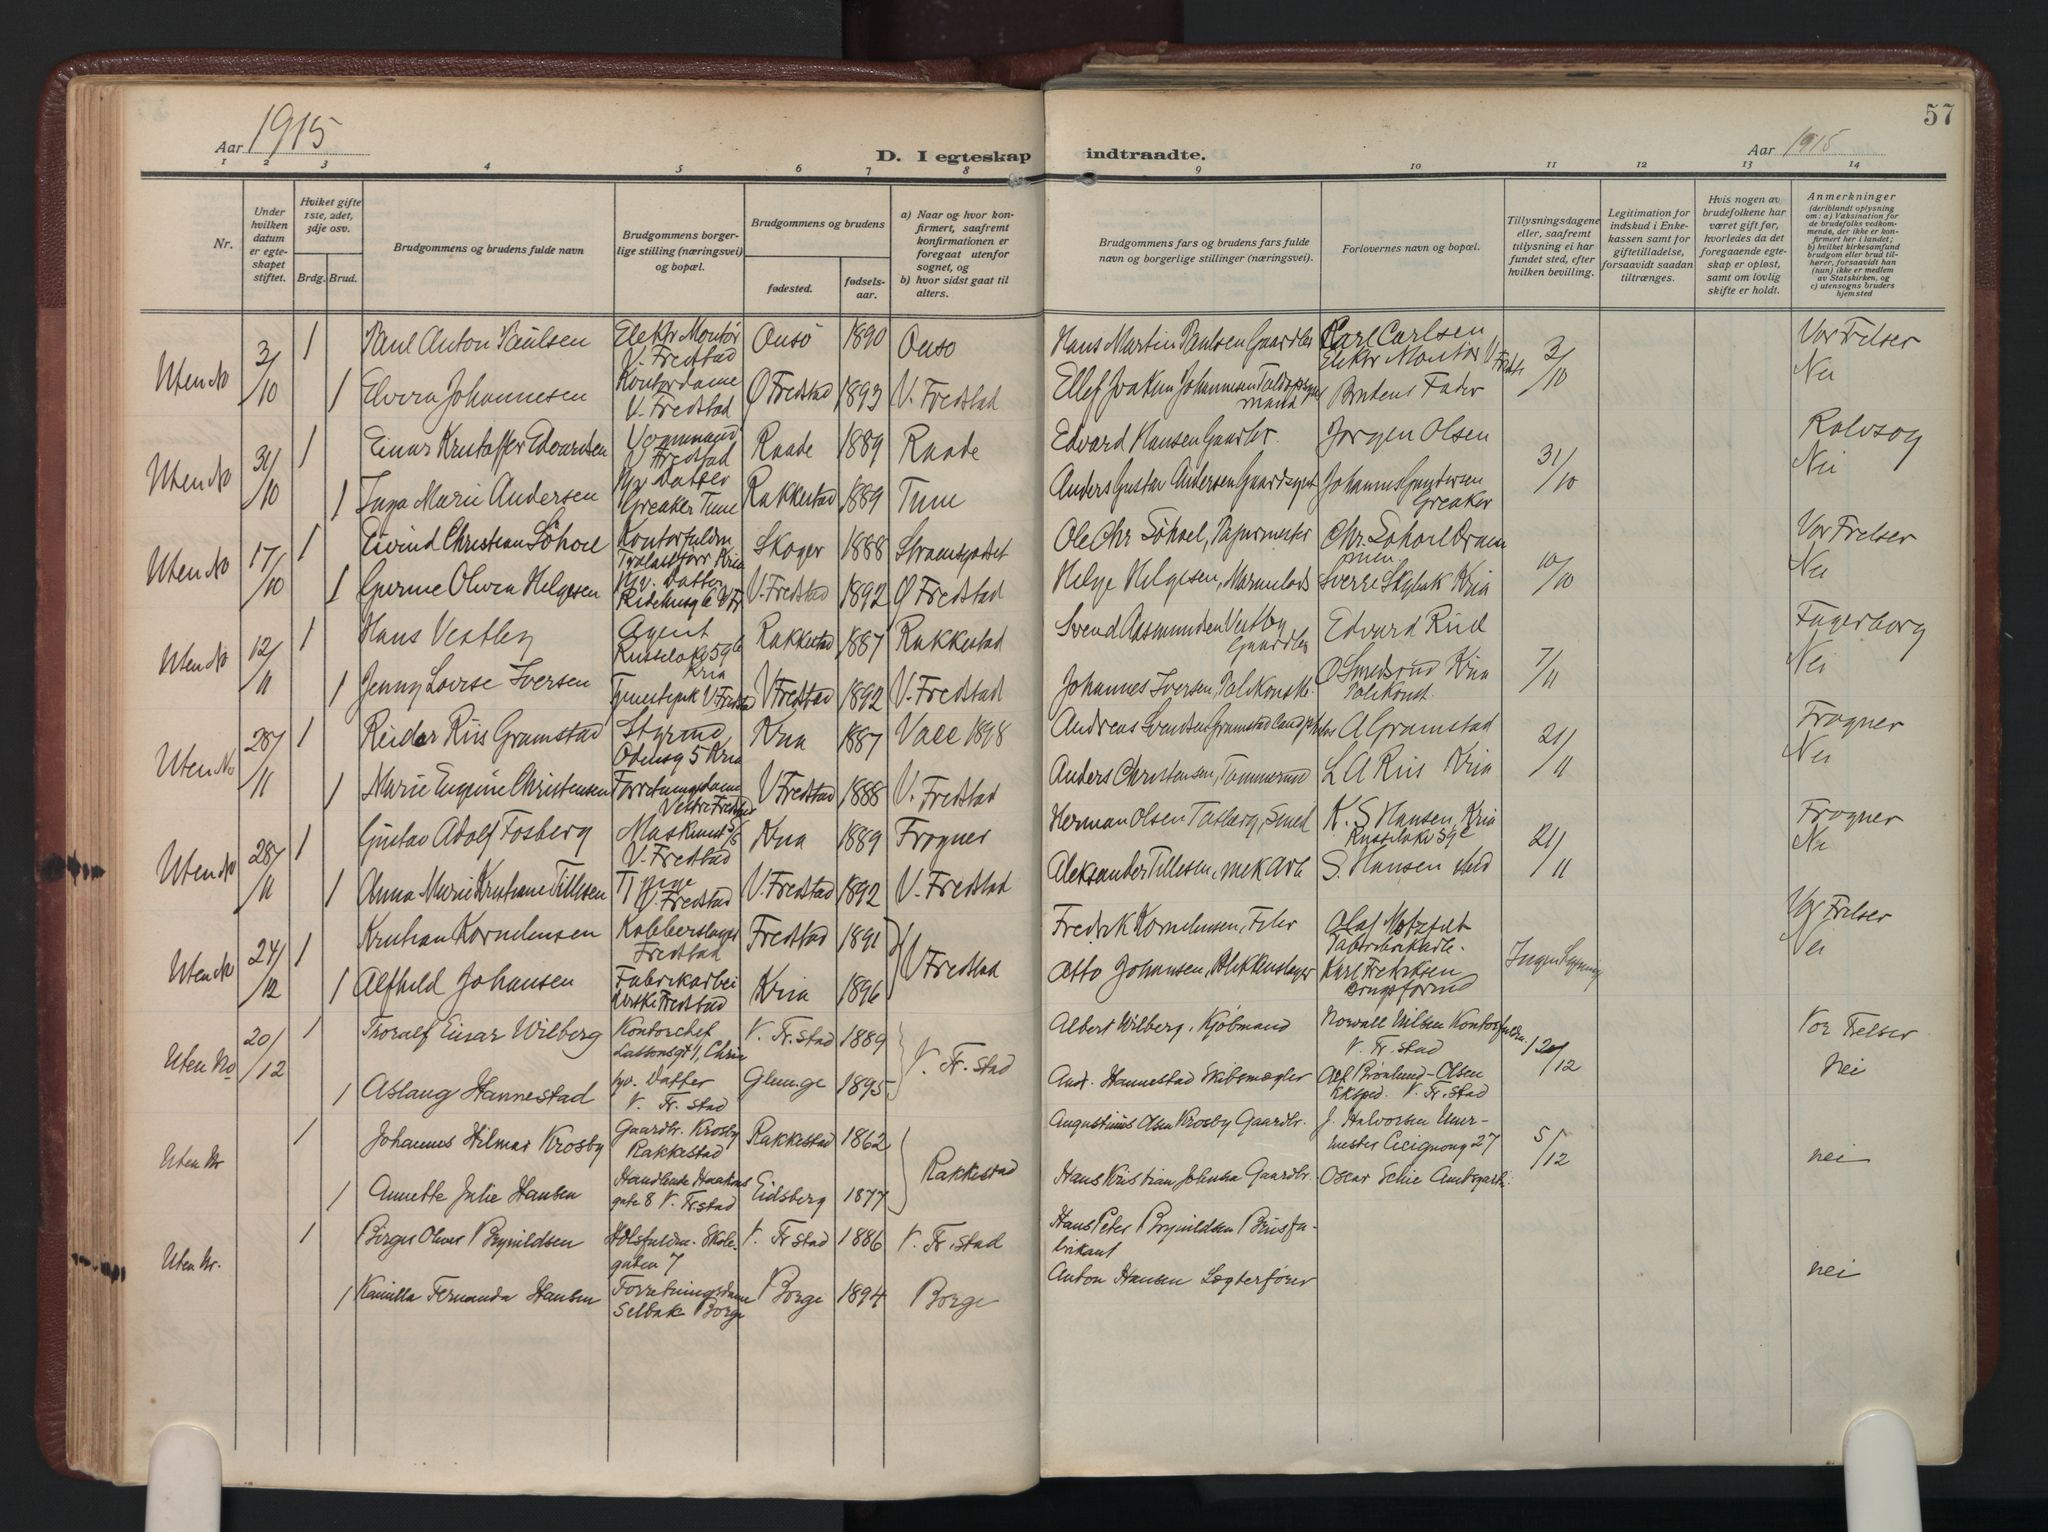 57
Aar 1915
D. I egteskap indtraadte.
Aar 1915
1 2 3 4 5 6 7 8 9 10 11 12 13 14
Nr.
Under hvilken datum er egteskapet stiftet.
Hviket gifte 1ste, 2det, 3dje osv.
Brdg. Brud.
Brudgommens og brudens fulde navn
Brudgommens borgerlige stilling (næringsvei) og bopæl.
Brudgommens og brudens
fødested.
fødselsaar.
a) Naar og hvor konfirmert, saafremt konfirmationen er foregaat utenfor sognet, og
b) hvor sidst gaat til alters.
Brudgommens fars og brudens fars fulde navn og borgerlige stillinger (næringsvei).
Forlovernes navn og bopæl.
Tillysningsdagene eller, saafremt tillysning ei har fundet sted, efter hvilken bevilling.
Legitimation for indskud i Enkekassen samt for giftetilladelse, forsaavidt saadan tiltrænges.
Hvis nogen av brudefolkene har været gift før, hvorledes da det foregaaende egteskap er opløst, samt om lovlig skifte er holdt.
Anmerkninger
(deriblandt oplysning om: a) Vaksination for de brudefolks vedkommende, der ikke er konfirmert her i landet; b) hvilket kirkesamfund brudgom eller brud tilhører, forsaavidt han (hun) ikke er medlem av Statskirken, og c) utensogns bruders hjemsted
Uten No 3/10 1 Paul Anton Paulsen Elektr Montør V. Fredstad Onsø 1890 Onsø Hans Martin Paulsen Gaardbr Karl Carlsen Elektr Montør V Fredst 3/10 Vor Frelser
1 Elvira Johannesen Kontordame V. Fredstad Ø Fredstad 1893 V. Fredstad Ellef Joakim Johannesen Brudens Fader Nei
Uten No 31/10 1 Einar Kristoffer Edvardsen V Fredstad Raade 1889 Raade Edvard Hansen Gaardbr. Jørgen Olsen 31/10 Rolvsøy
1 Inga Marie Andersen Hv. Datter Greaker Tune Rakkestad 1889 Tune Anders Gustav Andersen Johannes Gundersen Greaker Nei
Uten No 17/10 1 Eivind Christian Søhoel Kontorfuldm Kria Skoger 1888 Strømsgodset Ole Chr Søhoel, Papirmester Chr. Søhoel Drammen 10/10 Vor Frelser
1 Olivia Helgesen Hv. Datter V. Fredstad 1892 Ø Fredstad Helge Helgesen, Sverre Kria Nei
Uten No 12/11 1 Hans Vestby Agent Kria Rakkestad 1887 Rakkestad Svend Aasmundsen Vestby Gaardbr Edvard Riid 7/11 Fagerborg
1 Jenny Lovise Iversen V Fredstad V Fredstad 1892 V. Fredstad Johannes Iversen, Politikonst. O Smedsrud Kria Politikonst. Nei
Uten No 28/11 1 Reidar Riis Gramstad Styrmd 5 Kria Kria 1887 1898 Andreas Svendsen Gramstad A Gramstad 21/11 Frogner
1 Marie Eugine Christensen Forretningsdame Vestre Fredstad V Fredstad 1888 V. Fredstad Anders Christensen, Tømmermd L A Riis Kria Nei
Uten No 28/11 1 Gustav Adolf Fosberg V. Fredstad Kria 1889 Frogner Herman Olsen Smed K. S Hansen, Kria 21/11 Frogner
1 Anna Marie Kristiane Tillesen V. Fredstad V. Fredstad 1892 V. Fredstad Aleksander Tillesen, mek Arb S. Hansen sted Nei
Uten No 24/12 1 Kristian Kornelinsen Kobberslager Fredstad Fredstad 1891 V Fredstad Fredrik Kornelinsen, Olaf Ingen Lysning Vor Frelser
1 Alfhild Johansen Fabrikarbei Vestre Fredstad Kria 1896 Otto Johansen, Blikkenslager Karl Fredriksen Brugsformd Nei
Uten No 20/12 1 Thoralf Einar Wilberg Kontorchef Lassonsgt 1, Chria V. Fr.stad 1889 V. Fr. stad Albert Wilberg, Kjøbmand Norvall Nilsen Kontorfuldm. V. Fr. stad 20/12 Vor Frelser
1 Aslaug Hannestad hv. Datter V. Fr. stad Glemge 1895 And. Hannestad Skibsmægler Alf Brønlund-Olsen Ekspd. V. Fr. stad Nei
Uten Nr 1 Johannes Hilmar Krosby Gaardbr. Krosby Rakkestad Rakkestad 1862 Rakkestad Augustinus Olsen Krosby Gaardbr. J. Halvorsen 27 5/12
1 Annette Julie Hansen gate 8 V. Fr.stad Eidsberg 1877 Hans Kristian Johnsen Gaardbr. Oscar Schie nei
Uten Nr. 1 Birger Oliver Brynildsen Skolegaten 7 V. Fr stad 1886 V. Fr. stad Hans Peter Brynildsen Brusfabrikant
1 Kamilla Fernanda Hansen Forretningsdame Selbak Borge Borge 1894 Borge Anton Hansen Lægterfører nei